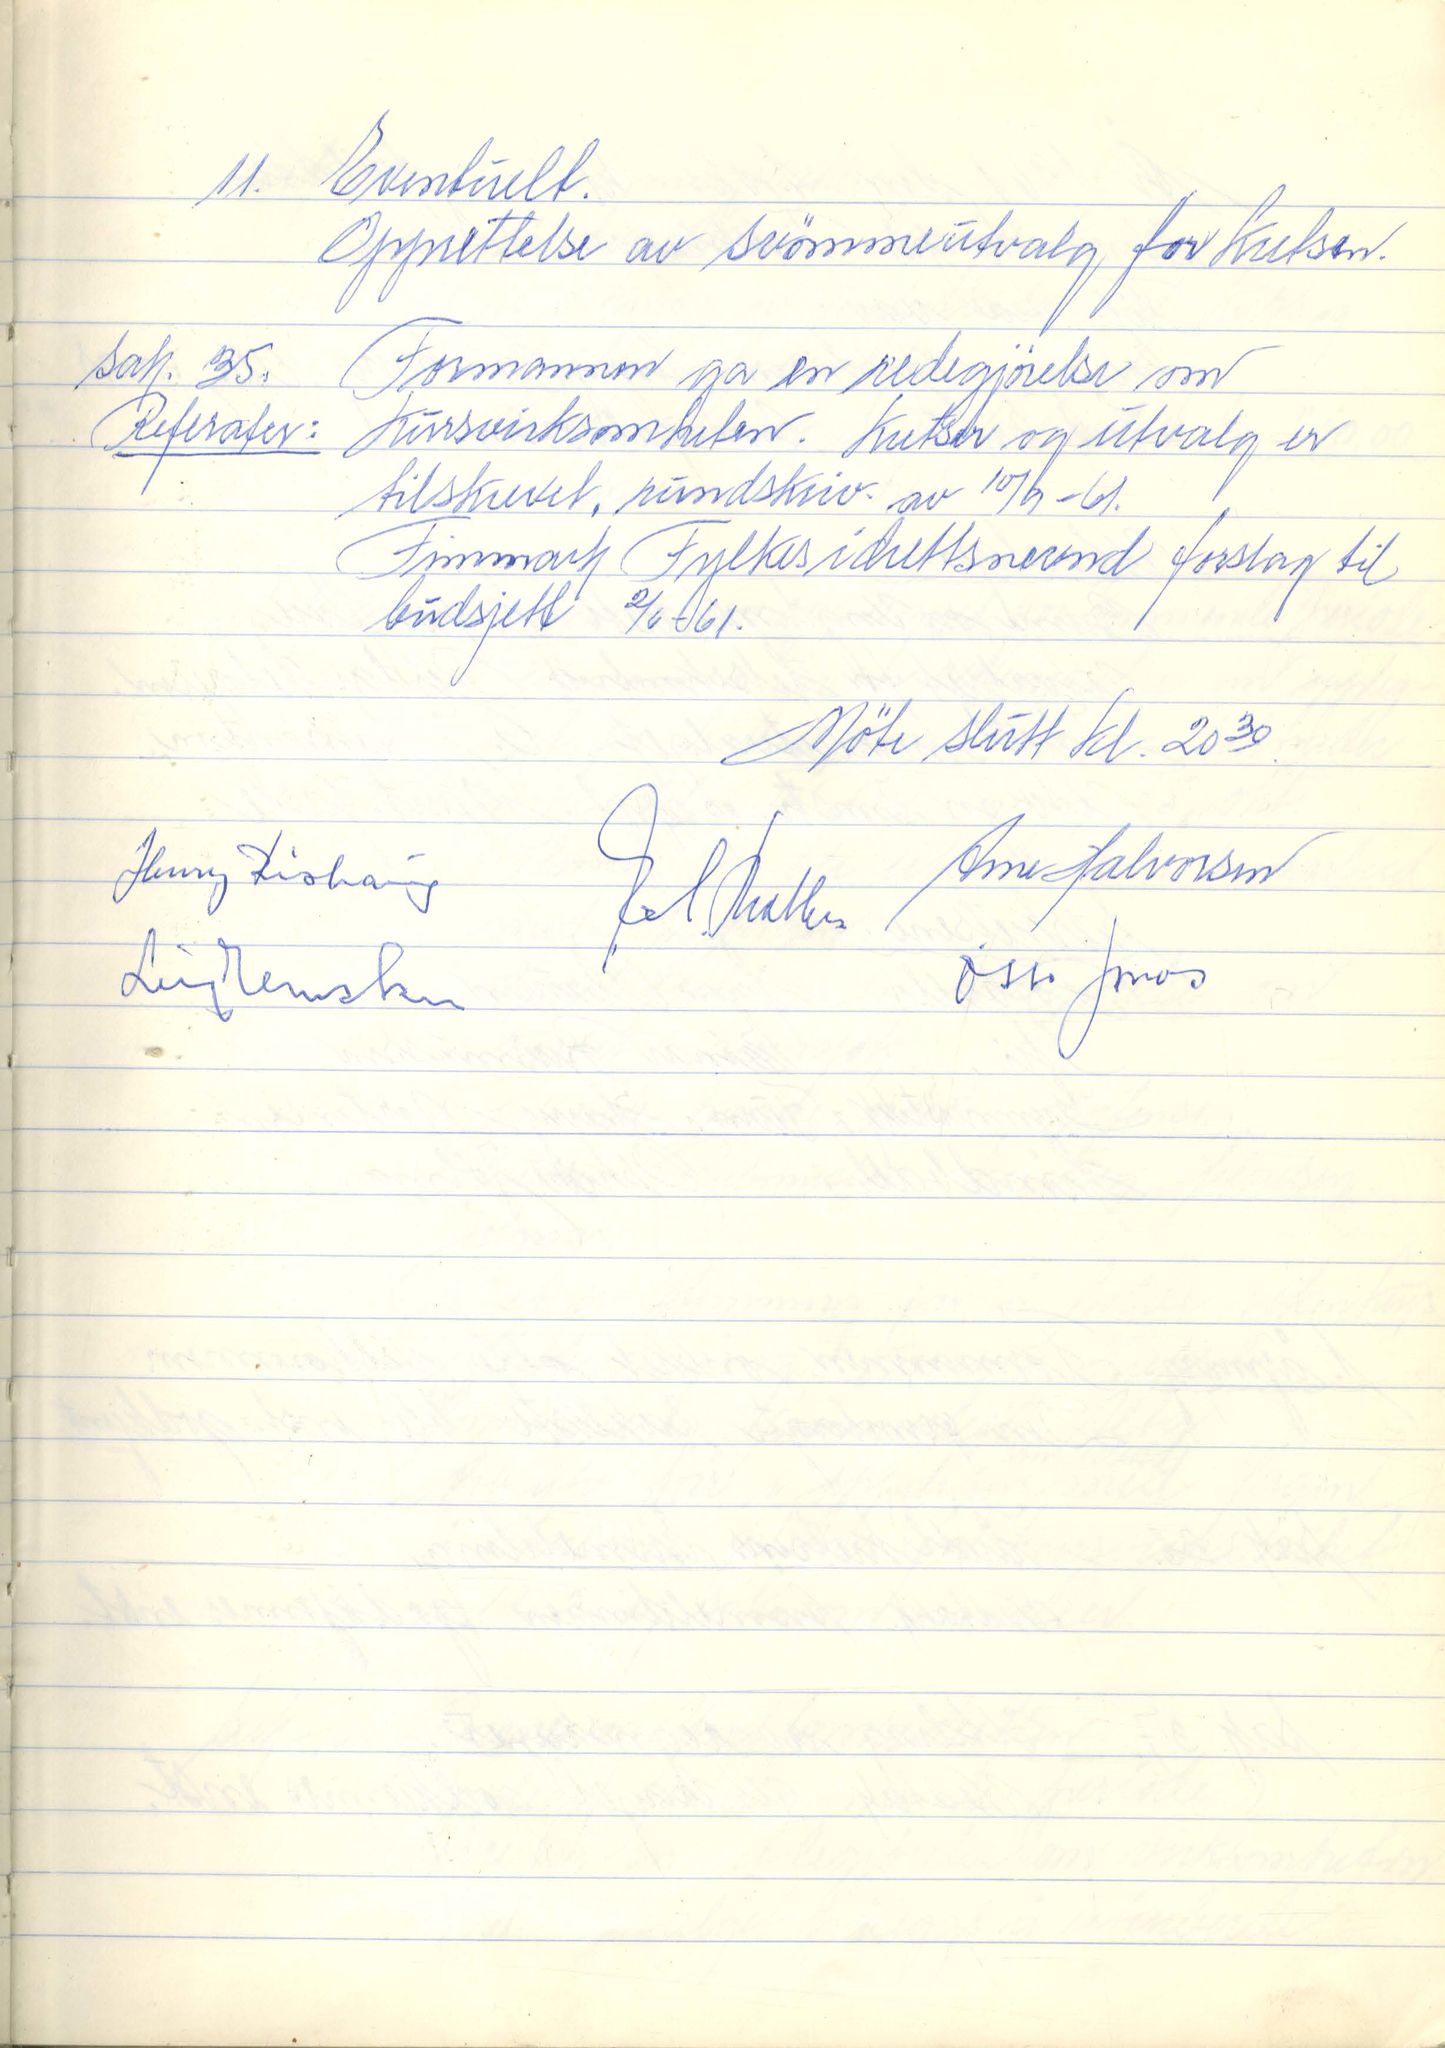 11. Eventuelt.
Opprettelse av svömmeutvalg for Kretsen.
Sak. 35. Formannen ga en redegjörelse om
Referater: Kursvirksomheten. Kretser og utvalg er
tilskrevet, rundskriv. av 10/9-61.
Finnmark Fylkes idrettsnevnd forslag til
budsjett 2/6-61.
Möte slutt kl. 20 30.
Henry
Arne Halvorsen